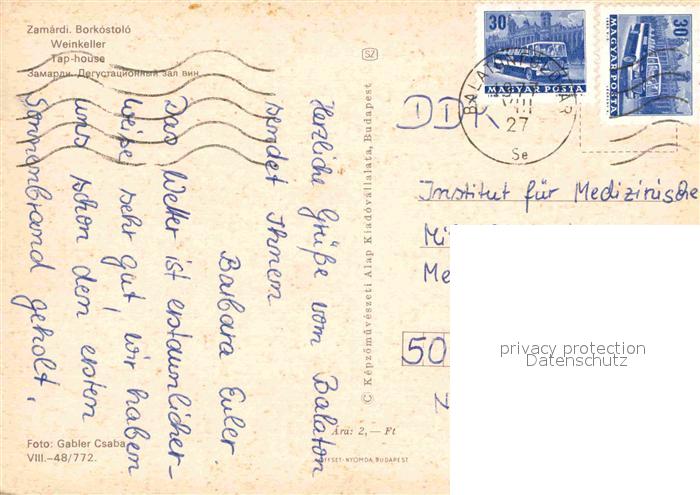 Zamárdi. Borkóstoló
Weinkeller
Tap-house
Замарди. Дегустационный зал вин.
SZ
30
MAGYAR POSTA
30
MAGYAR POSTA
27
Se
DDR
Institut für Medizinische
50
Herzliche Grüße vom Balaton
sendet Ihnen
Barbara Euler.
Das Wetter ist erstaunlicher-
weise sehr gut, wir haben
uns schon den ersten
Sonnenbrand geholt.
© Képzőművészeti Alap Kiadóvállalata, Budapest
Foto: Gabler Csaba
VIII.–48/772.
Ára: 2,— Ft
OFFSET-NYOMDA, BUDAPEST
privacy protection
Datenschutz